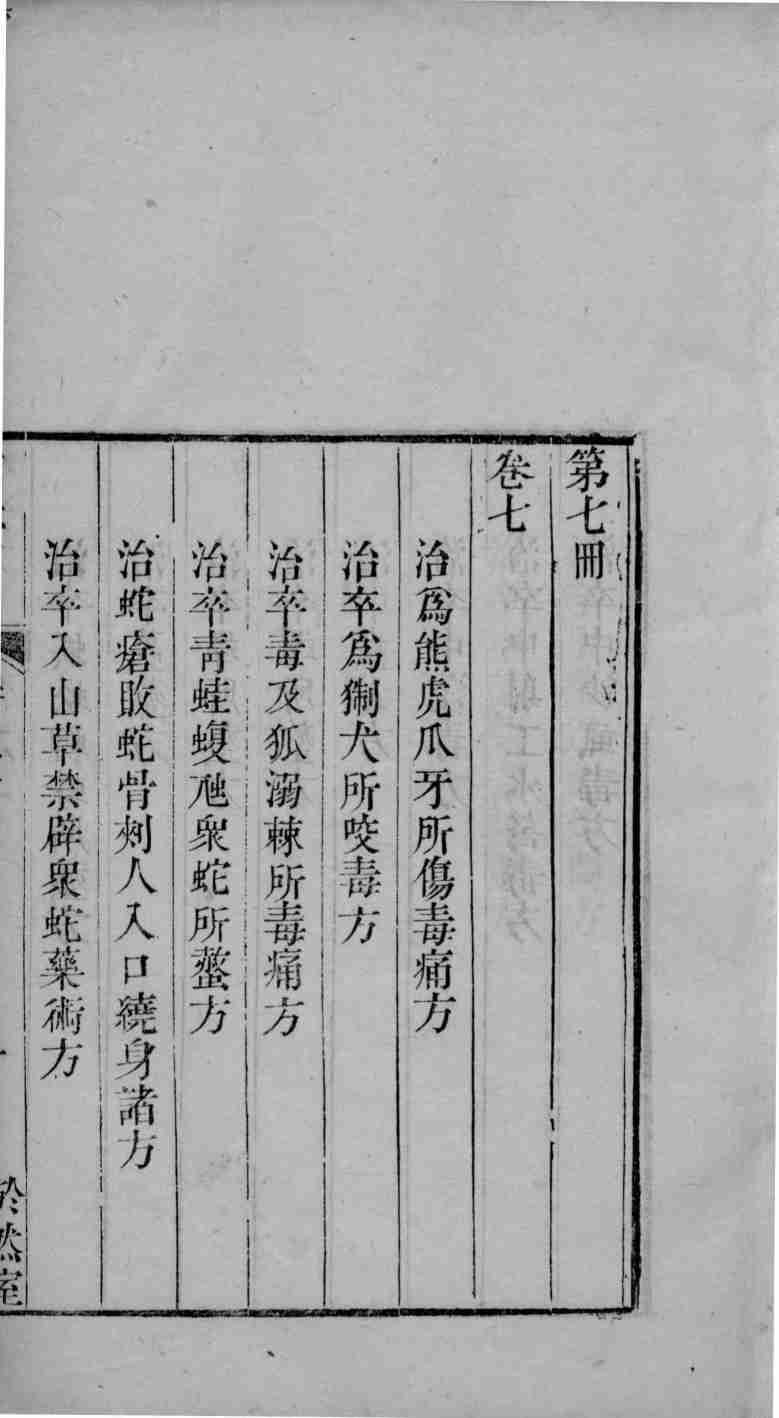 第七冊
卷七
治爲熊虎爪牙所傷毒痛方
治卒爲猘犬所咬毒方
治卒毒及狐溺棘所毒痛方
治卒青蛙蝮虺衆蛇所螫方
治蛇瘡敗蛇骨刺人入口繞身諸方
治卒入山草禁辟衆蛇藥術方
於然室